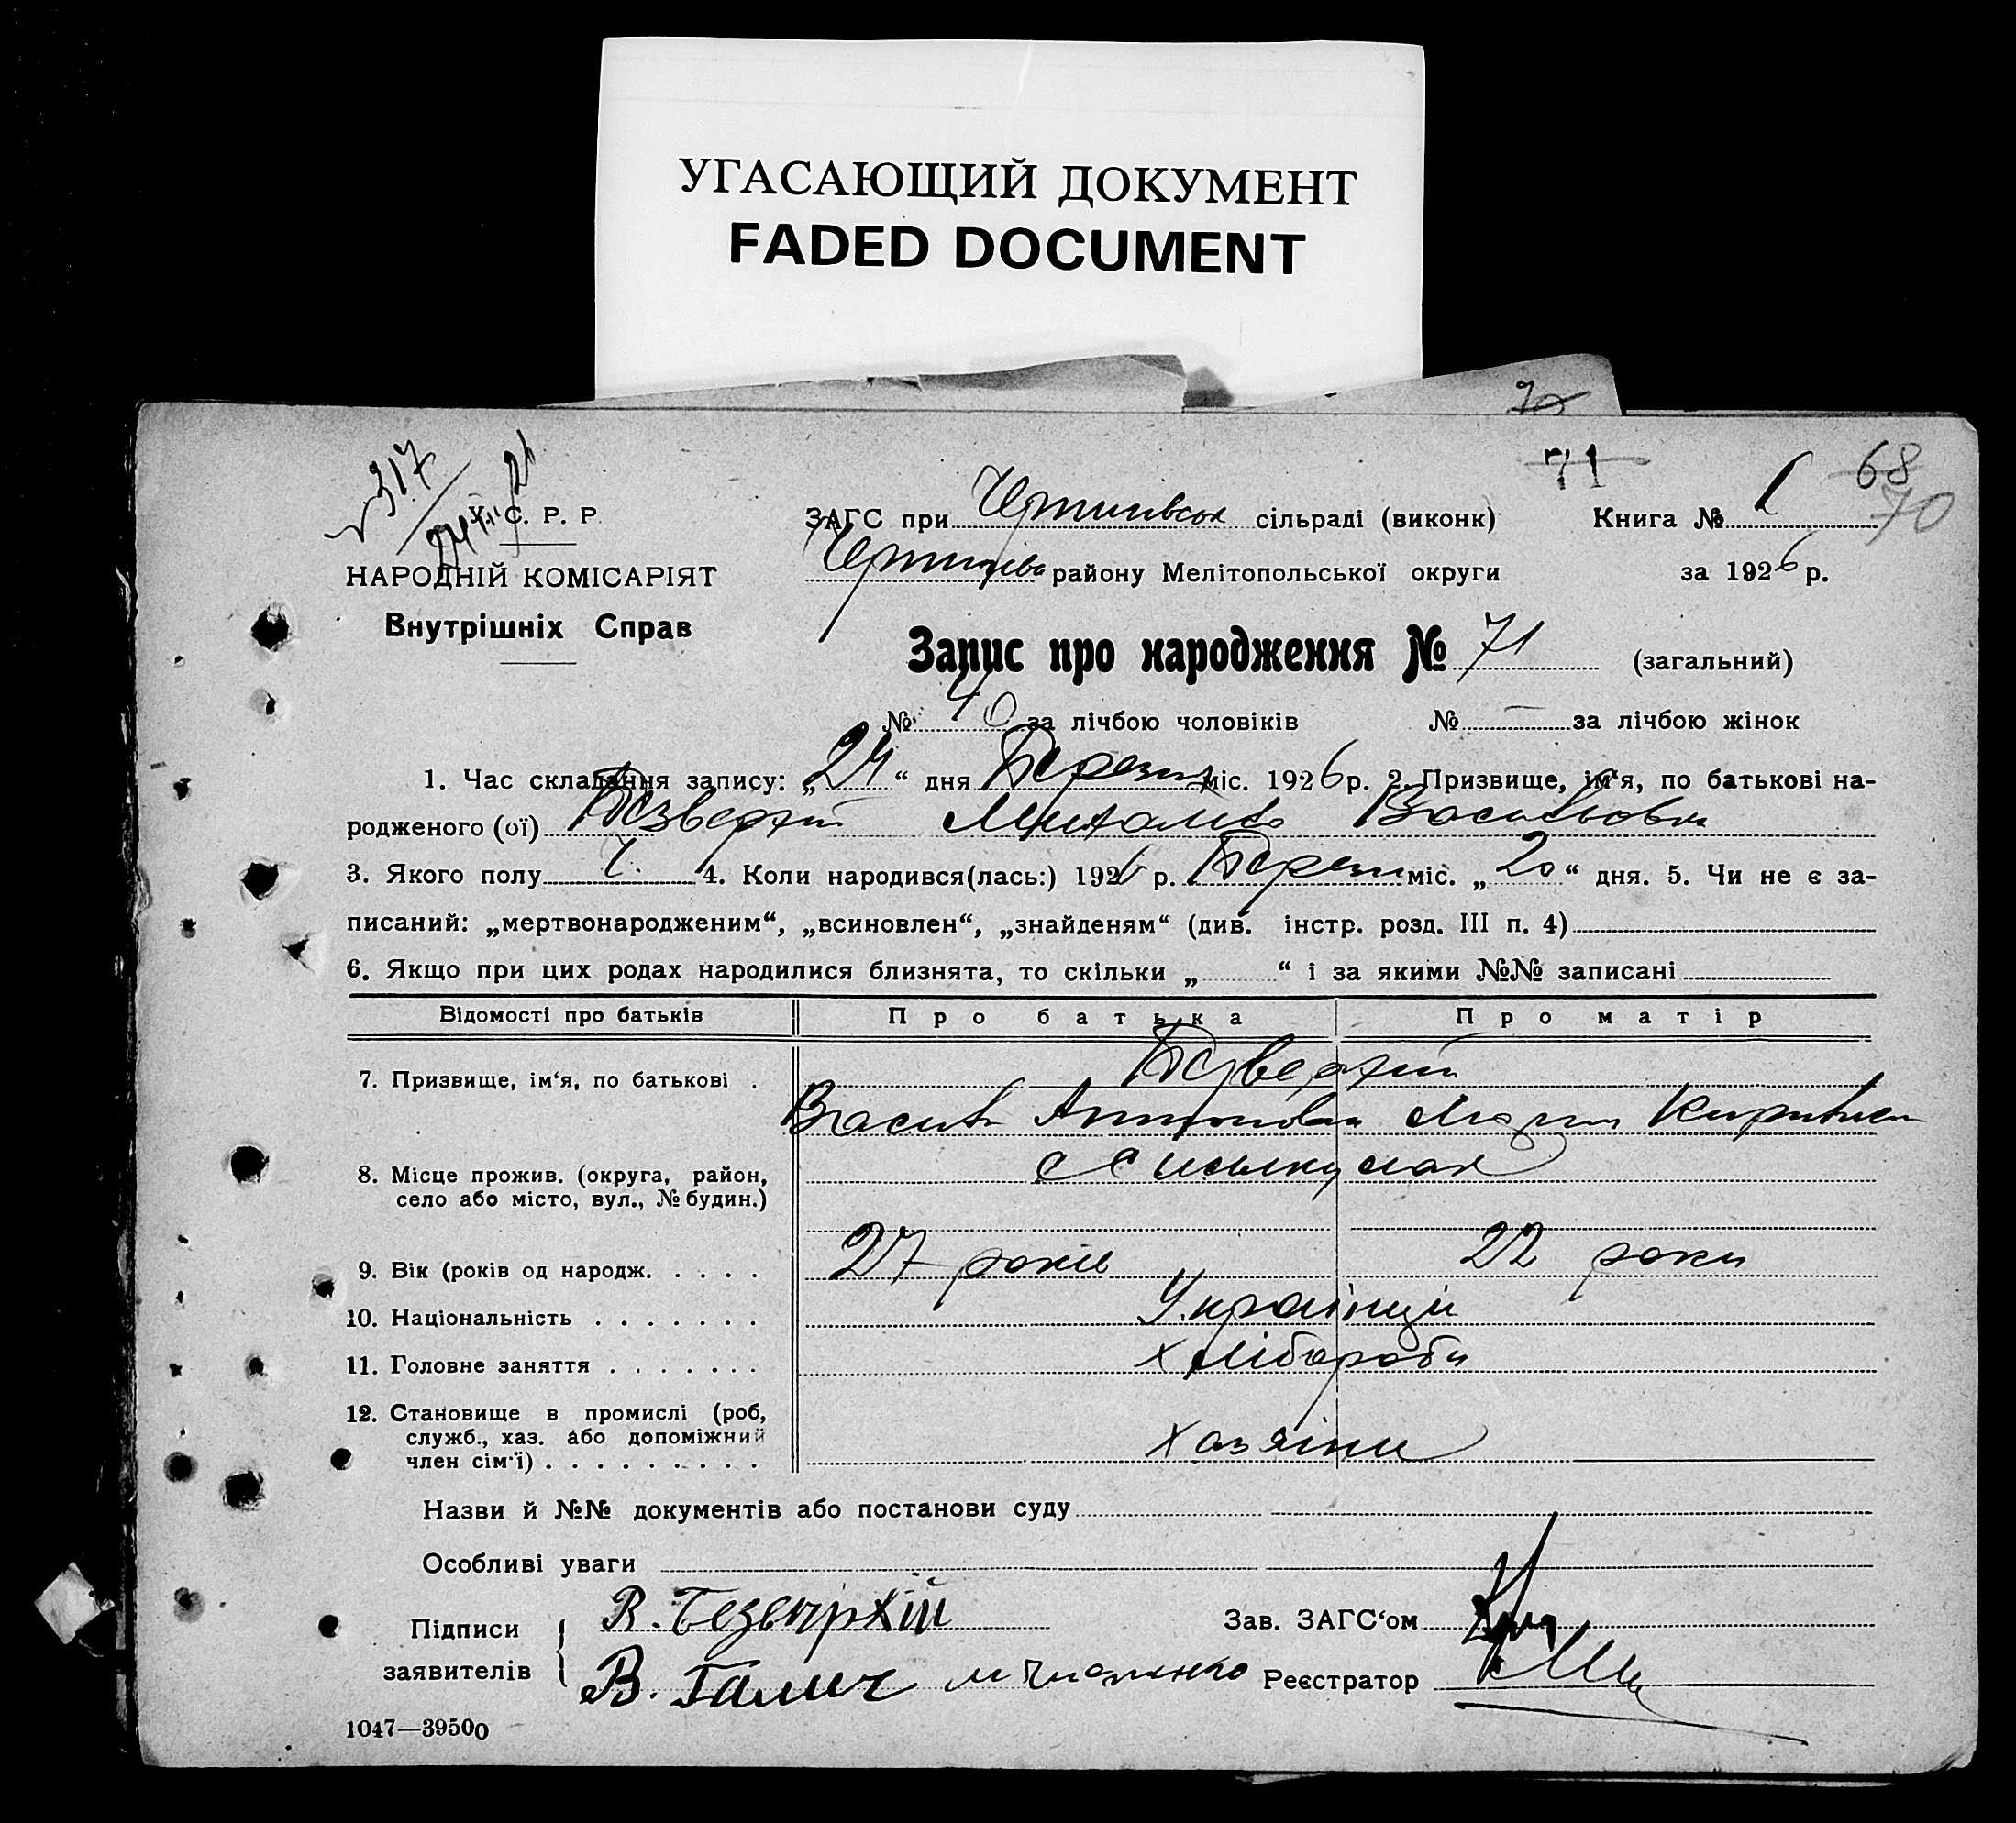 УГАСАЮЩИЙ ДОКУМЕНТ
FADED DOCUMENT
70
71
68
70
317
У. С. Р. Р.
НАРОДНІЙ КОМІСАРІЯТ
Внутрішніх Справ
ЗАГС при сільраді (виконк) Книга № 1
району Мелітопольської округи за 1926 р.
Запис про народження № 71 (загальний)
№ 40 за лічбою чоловіків № — за лічбою жінок
1. Час складання запису: „24“ дня Березня міс. 1926 р. 2. Призвище, ім‘я, по батькові на-
родженого (ої) Безверхий Михайло Васильович
3. Якого полу Ч. 4. Коли народився(лась:) 1926 р. Березня міс. „20“ дня. 5. Чи не є за-
писаний: „мертвонародженим“, „всиновлен“, „знайденям“ (див. інстр. розд. III п. 4)
6. Якщо при цих родах народилися близнята, то скільки „ “ і за якими №№ записані
Відомості про батьків Про батька Про матір
7. Призвище, ім‘я, по батькові . Безверхии
Василь Антонович Мария
8. Місце прожив. (округа, район,
село або місто, вул., № будин.)
9. Вік (років од народж. . . . . 27 років 22 роки
10. Національність . . . . . . . Українци
11. Головне заняття . . . . . . . хлібороби
12. Становище в промислі (роб,
служб., хаз. або допоміжний
член сім‘ї) . . . . . . . . . хазяіни
Назви й №№ документів або постанови суду
Особливі уваги
Підписи заявителів В. Безвірхій Зав. ЗАГС‘ом
В. Галич Реєстратор
1047—39500